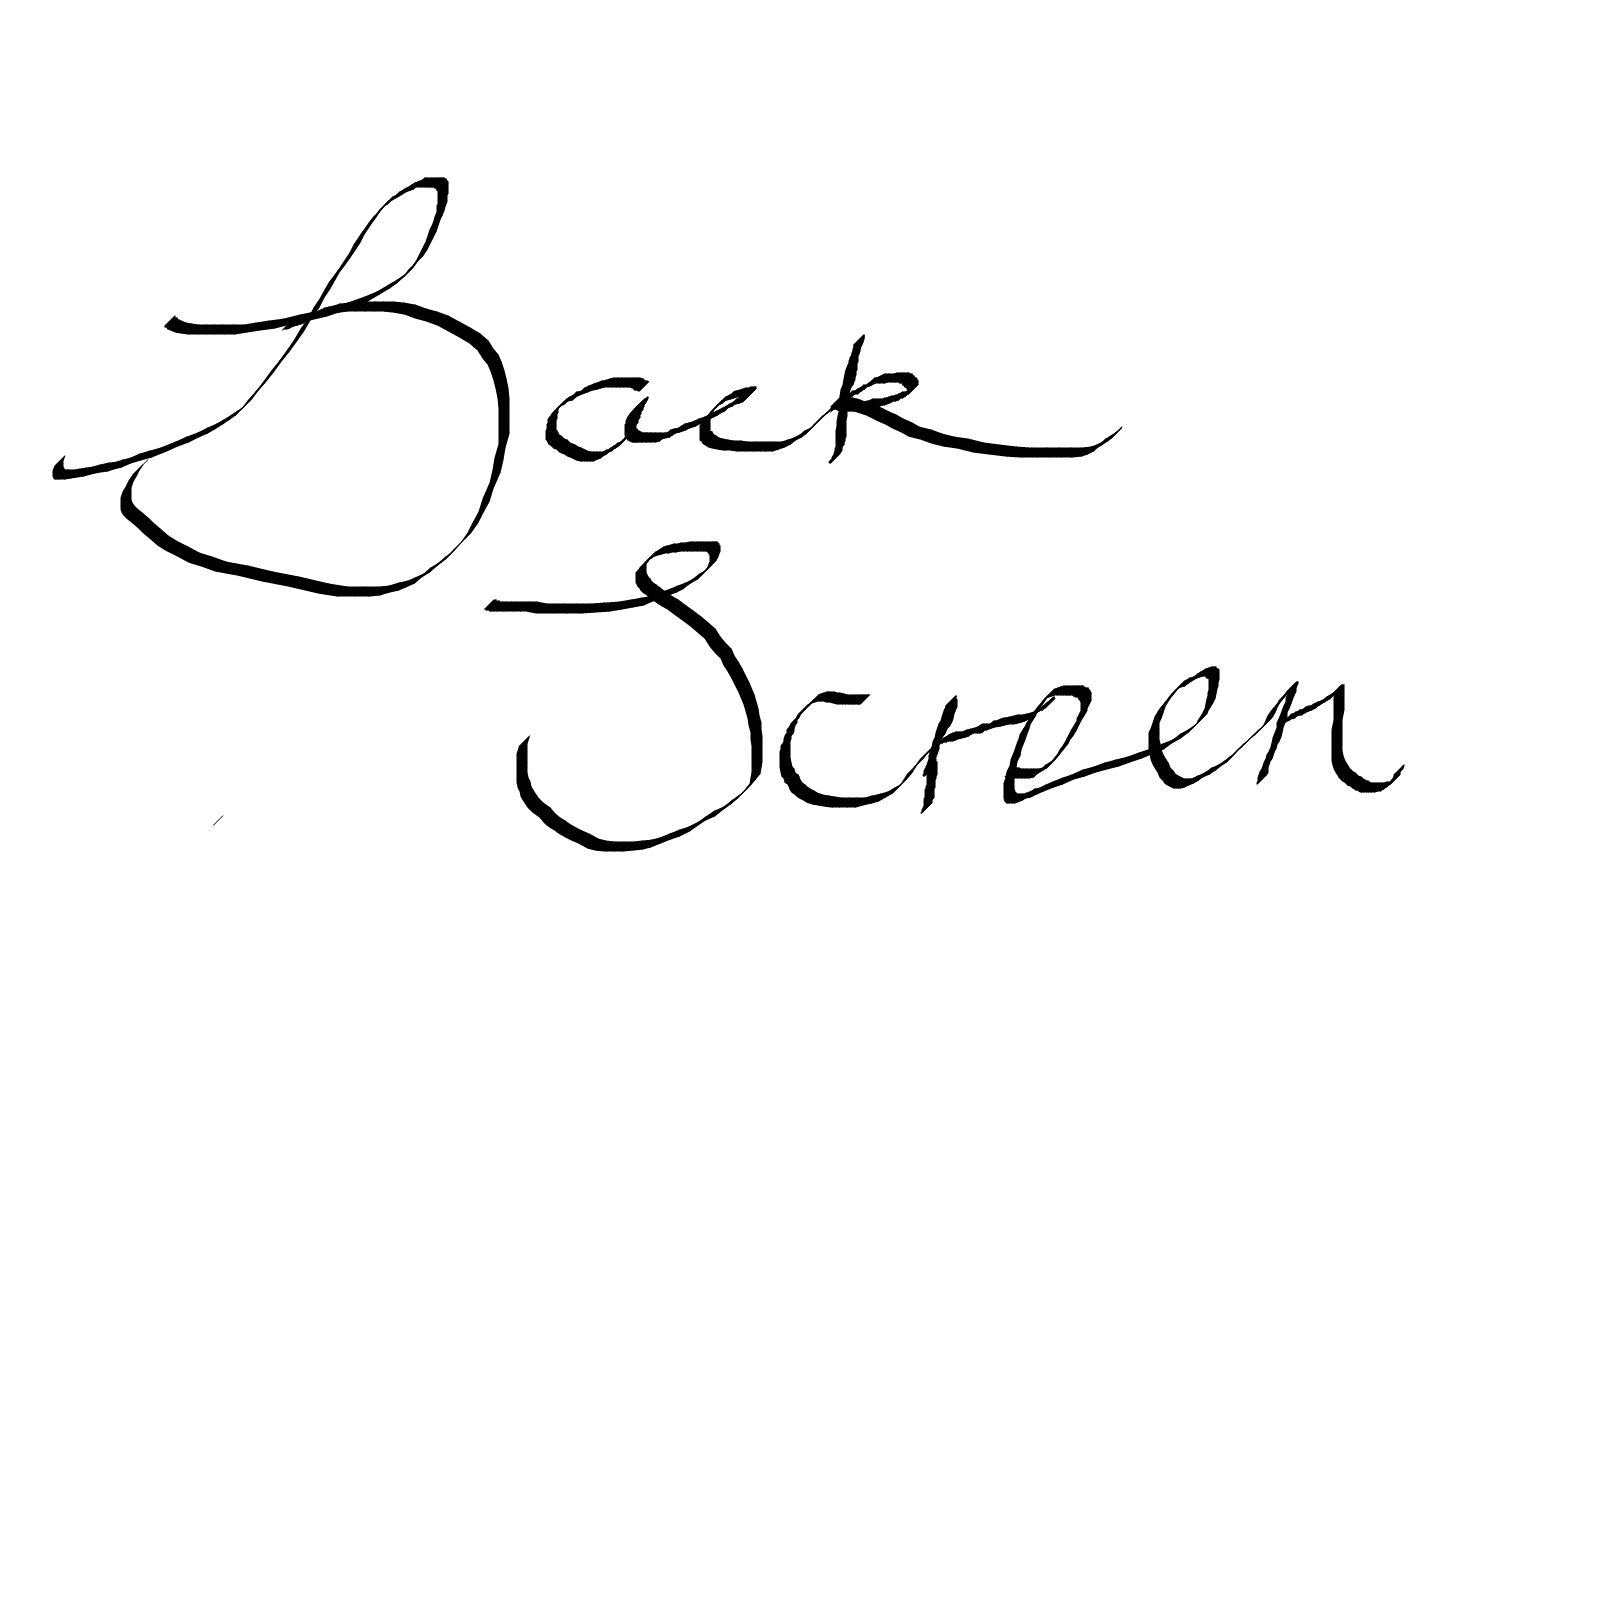 Back
Screen